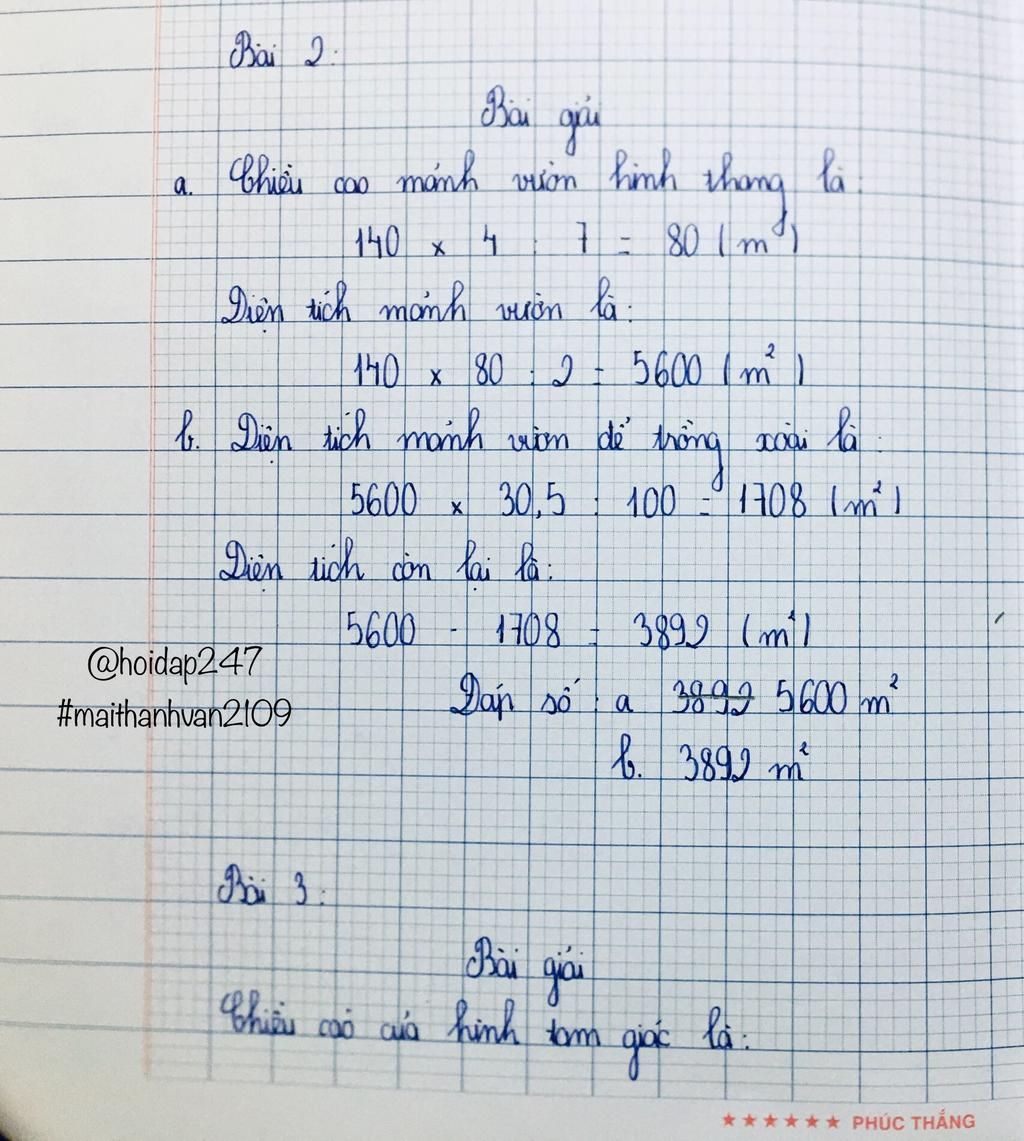 Bài 2:
Bài giải
a. Chiều cao mảnh vườn hình thang là:
140 x 4 : 7 = 80 (m)
Diện tích mảnh vườn là:
140 x 80 : 2 = 5600 (m²)
b. Diện tích mảnh vườn để trồng xoài là:
5600 x 30,5 : 100 = 1708 (m²)
Diện tích còn lại là:
5600 - 1708 = 3892 (m²)
@hoidap247
#maithanhvan2109
Đáp số: a 3892 5600 m²
b. 3892 m²
Bài 3:
Bài giải
Chiều cao của hình tam giác là:
★★★★★★ PHÚC THẮNG